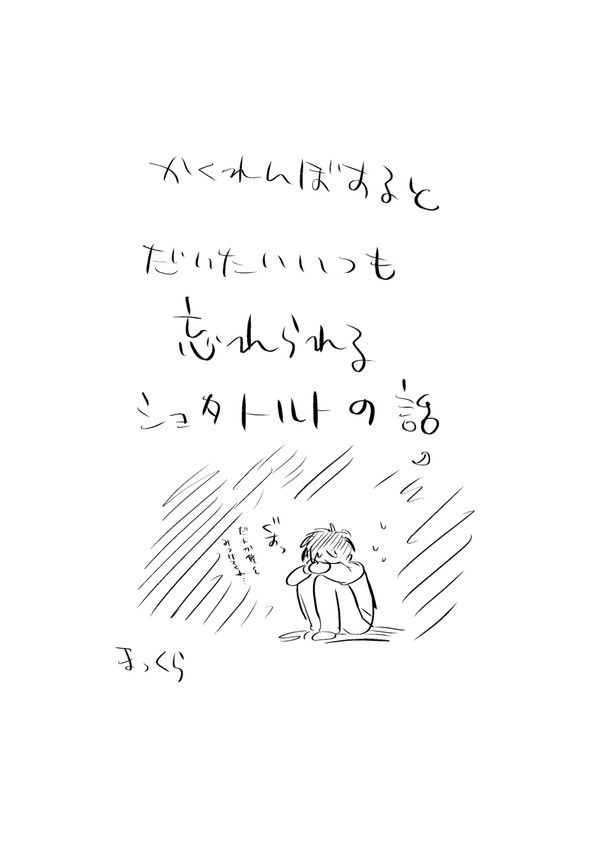 かくれんぼすると
だいたいいつも
忘れられる
シュタトルトの話
ぐすっ
だれか僕を
みつけて…
まっくら